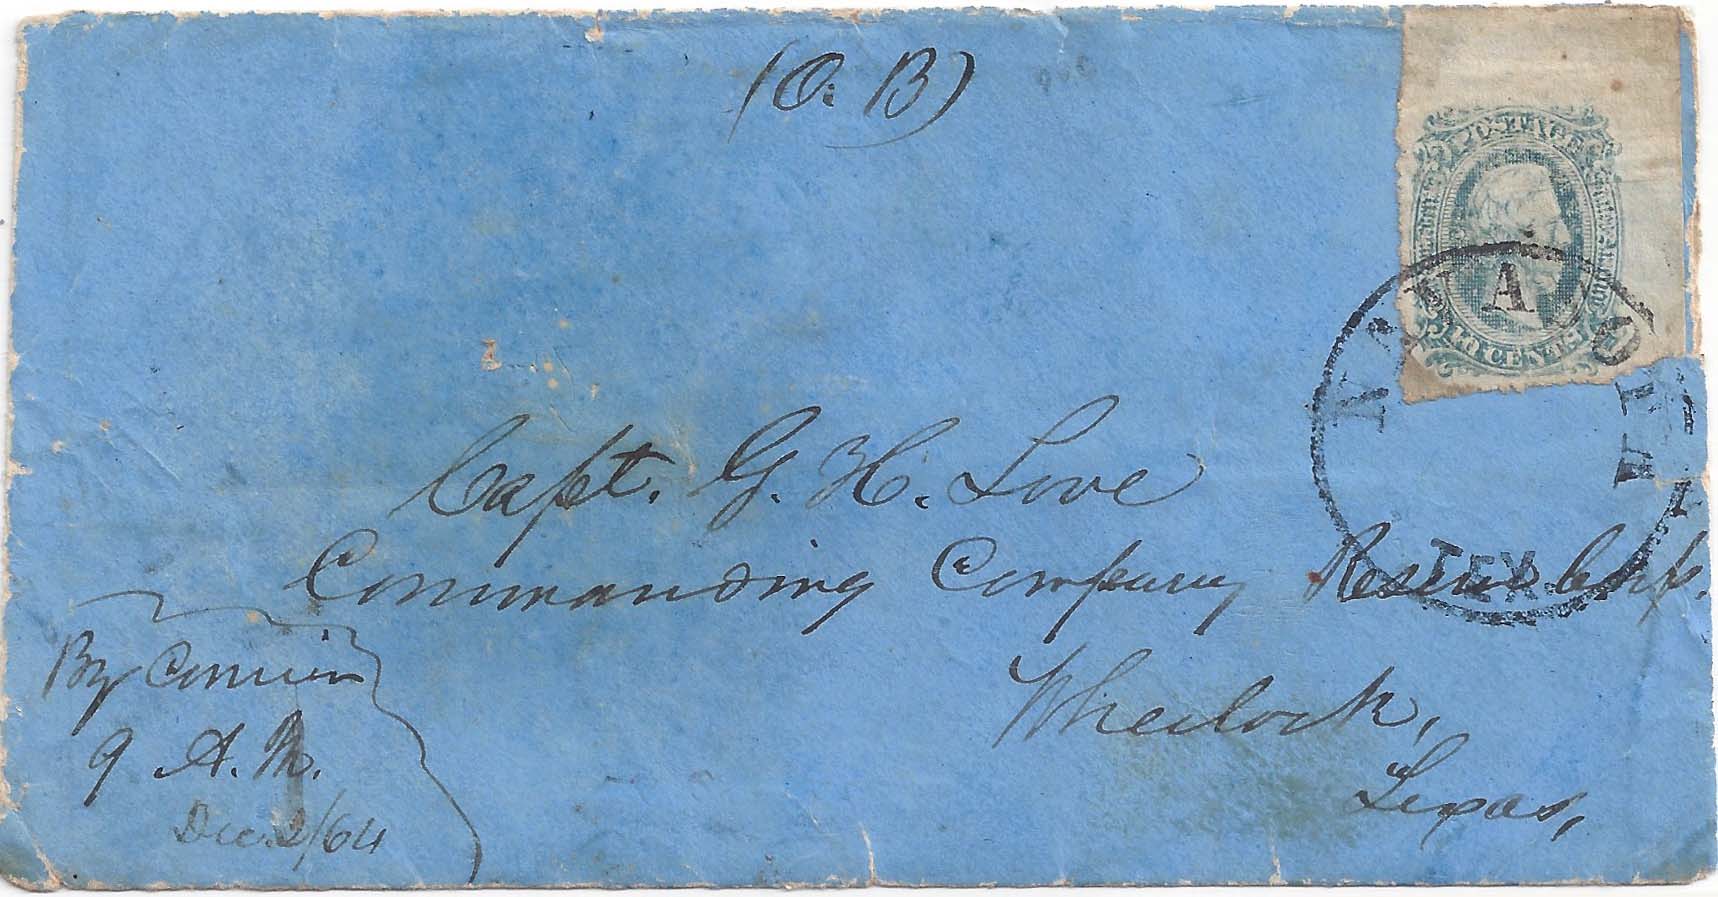 (O. B)
10 CENTS
Capt. G. H. Love
Commanding Company Reserve Corps.
Wheelock,
Texas,
By Courier
9 A. M.
Dec. 2/64
NAVASOTA
TEX.